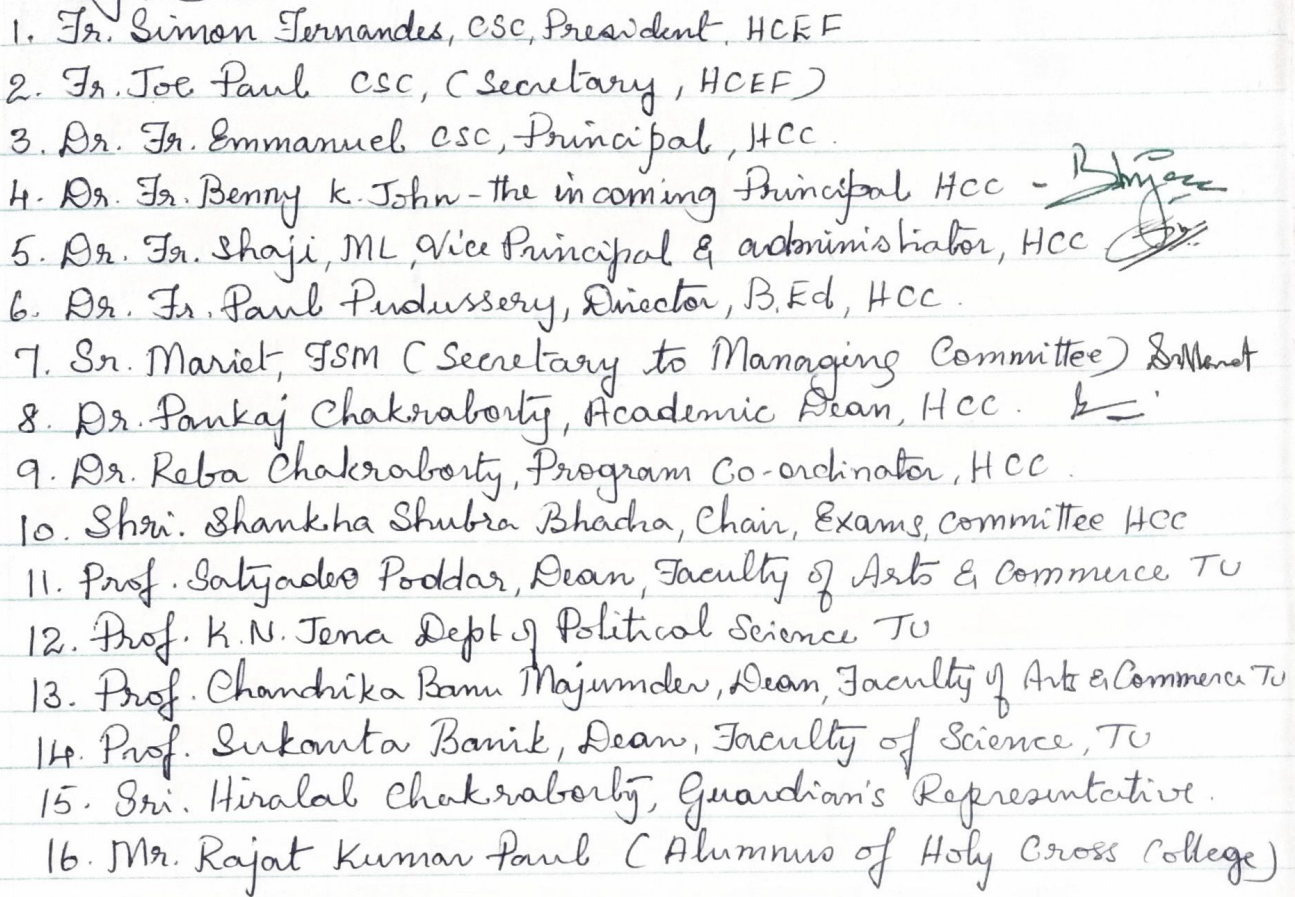 1. Fr. Simon Fernandes, CSC, President, HCEF
2. Fr. Joe Paul CSC, (Secretary, HCEF)
3. Dr. Fr. Emmanuel CSC, Principal, HCC.
4. Dr. Fr. Benny K. John - the incoming Principal HCC -
5. Dr. Fr. Shaji, ML, Vice Principal & administrator, HCC
6. Dr. Fr. Paul Pudussery, Director, B.Ed, HCC.
7. Sr. Mariet, FSM (Secretary to Managing Committee)
8. Dr. Pankaj Chakraborty, Academic Dean, HCC.
9. Dr. Reba Chakraborty, Program Co-ordinator, HCC.
10. Shri. Shankha Shubra Bhadra, Chair, Exams, Committee HCC
11. Prof. Satyadeo Poddar, Dean, Faculty of Arts & Commerce TU
12. Prof. K.N. Jena Dept of Political Science TU
13. Prof. Chandrika Banu Majumder, Dean, Faculty of Arts & Commerce TU
14. Prof. Sukanta Banik, Dean, Faculty of Science, TU
15. Sri. Hiralal Chakraborty, Guardian's Representative.
16. Mr. Rajat Kumar Paul (Alumnus of Holy Cross College)